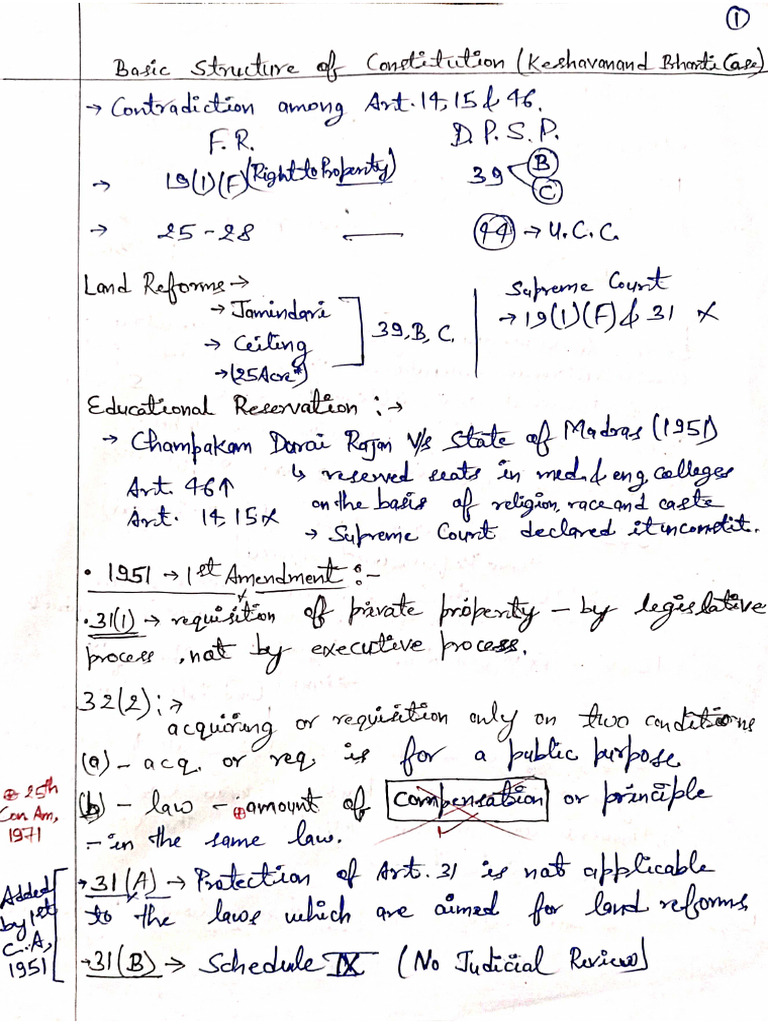 ①
Basic Structure of Constitution (Keshavanand Bharti Case)
→ Contradiction among Art. 14, 15 & 46.
F.R. D.P.S.P.
→ 19(1)(F) (Right to Property) 39 < B C
→ 25-28 — 44 → U.C.C.
Land Reforms →
→ Jamindari
→ Ceiling
→ (25 Acre*)
39, B, C.
Supreme Court
→ 19(1)(F) & 31 ×
Educational Reservation :→
→ Champakam Dorai Rajan V/s State of Madras (1951)
↳ reserved seats in med. & eng. colleges
Art. 46↑ on the basis of religion, race and caste
Art. 14, 15 × → Supreme Court declared it inconstit.
• 1951 → 1st Amendment :-
• 31(1) → requisition of private property - by legislative
process, not by executive process.
32(2) :→
acquiring or requisition only on two conditions
(a) - acq. or req. is for a public purpose
⊕ 25th
Con Am,
1971
(b) - law - ⊕ amount of compensation or principle
- in the same law.
Added
by 1st
C.A,
1951
→ 31(A) → Protection of Art. 31 is not applicable
to the laws which are aimed for land reforms
→ 31(B) → Schedule IX (No Judicial Review)